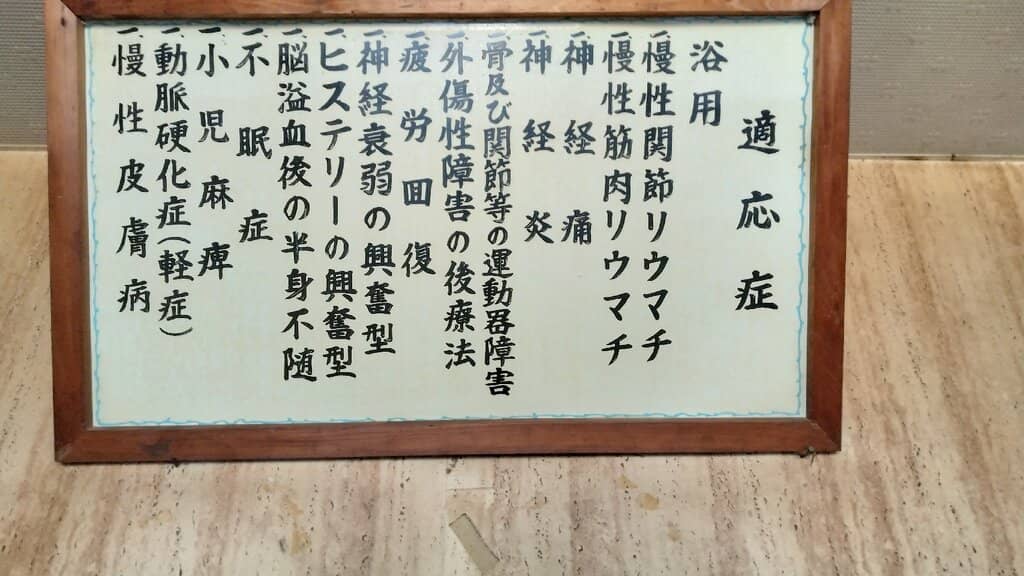 適応症
浴用
一、慢性関節リウマチ
一、慢性筋肉リウマチ
一、神経痛
一、神経炎
一、骨及び関節等の運動器障害
一、外傷性障害の後療法
一、疲労回復
一、神経衰弱の興奮型
一、ヒステリーの興奮型
一、脳溢血後の半身不随
一、不眠症
一、小児麻痺
一、動脈硬化症(軽症)
一、慢性皮膚病